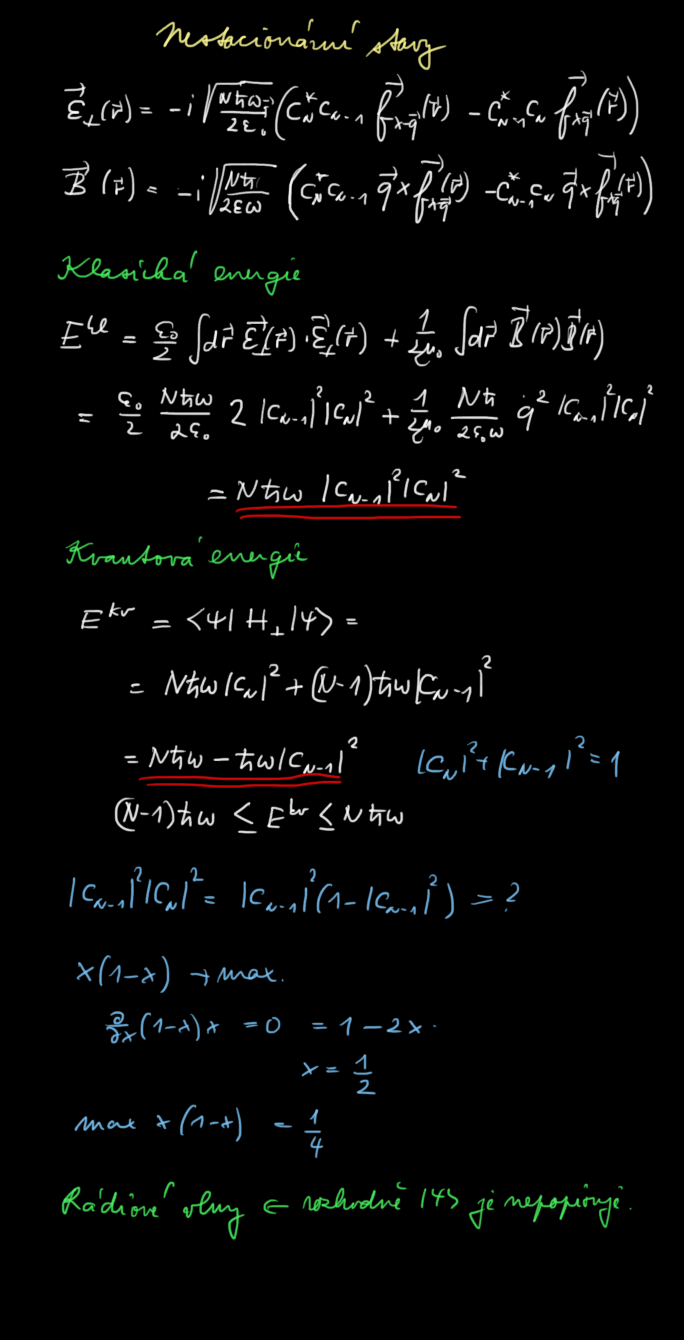 Nestacionární stavy
$\vec{\mathcal{E}}_\perp(\vec{r}) = -i \sqrt{\frac{N\hbar\omega}{2\varepsilon_0}} \left( c_N^* c_{N-1} \vec{f}_{x-\vec{q}}(\vec{r}) - c_{N-1}^* c_N \vec{f}_{x\vec{q}}(\vec{r}) \right)$
$\vec{B}(\vec{r}) = -i \sqrt{\frac{N\hbar}{2\varepsilon\omega}} \left( c_N^* c_{N-1} \vec{q} \times \vec{f}_{x\vec{q}}(\vec{r}) - c_{N-1}^* c_N \vec{q} \times \vec{f}_{x\vec{q}}(\vec{r}) \right)$
Klasická energie
$E^{kl} = \frac{\varepsilon_0}{2} \int d\vec{r}\, \vec{\mathcal{E}}_\perp(\vec{r}) \cdot \vec{\mathcal{E}}_\perp(\vec{r}) + \frac{1}{2\mu_0} \int d\vec{r}\, \vec{B}(\vec{r}) \vec{B}(\vec{r})$
$= \frac{\varepsilon_0}{2} \frac{N\hbar\omega}{2\varepsilon_0} 2 |c_{N-1}|^2 |c_N|^2 + \frac{1}{2\mu_0} \frac{N\hbar}{2\varepsilon_0\omega} q^2 |c_{N-1}|^2 |c_N|^2$
$= N\hbar\omega |c_{N-1}|^2 |c_N|^2$
Kvantová energie
$E^{kv} = \langle \psi | H_\perp | \psi \rangle =$
$= N\hbar\omega |c_N|^2 + (N-1)\hbar\omega |c_{N-1}|^2$
$= N\hbar\omega - \hbar\omega |c_{N-1}|^2$ $|c_N|^2 + |c_{N-1}|^2 = 1$
$(N-1)\hbar\omega \leq E^{kv} \leq N\hbar\omega$
$|c_{N-1}|^2 |c_N|^2 = |c_{N-1}|^2 (1 - |c_{N-1}|^2) = ?$
$x(1-x) \to$ max.
$\frac{\partial}{\partial x}(1-x)x = 0 = 1 - 2x.$
$x = \frac{1}{2}$
max $x(1-x) = \frac{1}{4}$
Rádiové vlny ← rozhodně $|\psi\rangle$ je nepopisuje.